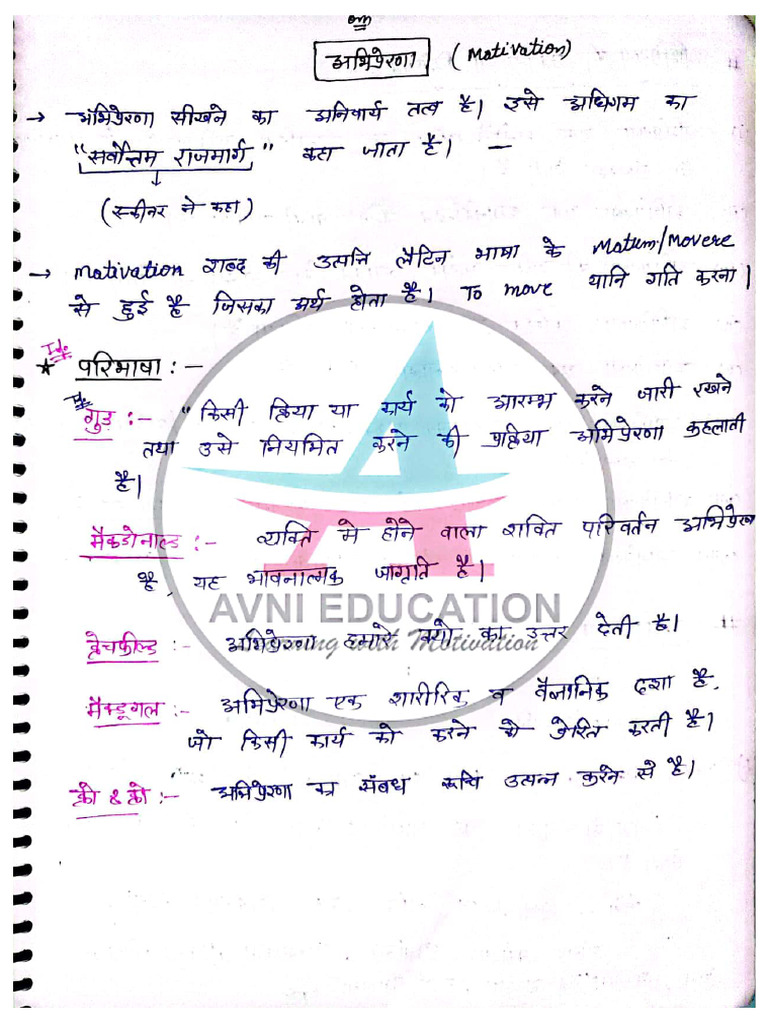 om
अभिप्रेरणा (Motivation)
→ अभिप्रेरणा सीखने का अनिवार्य तत्व है। इसे अधिगम का
"सर्वोत्तम राजमार्ग" कहा जाता है। —
(स्कीनर ने कहा)
→ Motivation शब्द की उत्पत्ति लैटिन भाषा के Motum/Movere
से हुई है जिसका अर्थ होता है। To move यानि गति करना।
★ परिभाषा :-
गुड :- "किसी क्रिया या कार्य को आरम्भ करने जारी रखने
तथा उसे नियमित करने की प्रक्रिया अभिप्रेरणा कहलाती
है।
मैक्डोनाल्ड :- व्यक्ति मे होने वाला शक्ति परिवर्तन अभिप्रेरणा
है, यह भावनात्मक जागृति है।
AVNI EDUCATION
ब्रेचफील्ड :- अभिप्रेरणा हमारे क्यो का उत्तर देती है।
with Motivation
मैक्डूगल :- अभिप्रेरणा एक शारीरिक व वैज्ञानिक दशा है,
जो किसी कार्य को करने को प्रेरित करती है।
क्रो & क्रो :- अभिप्रेरणा का संबध रूचि उत्पन्न करने से है।